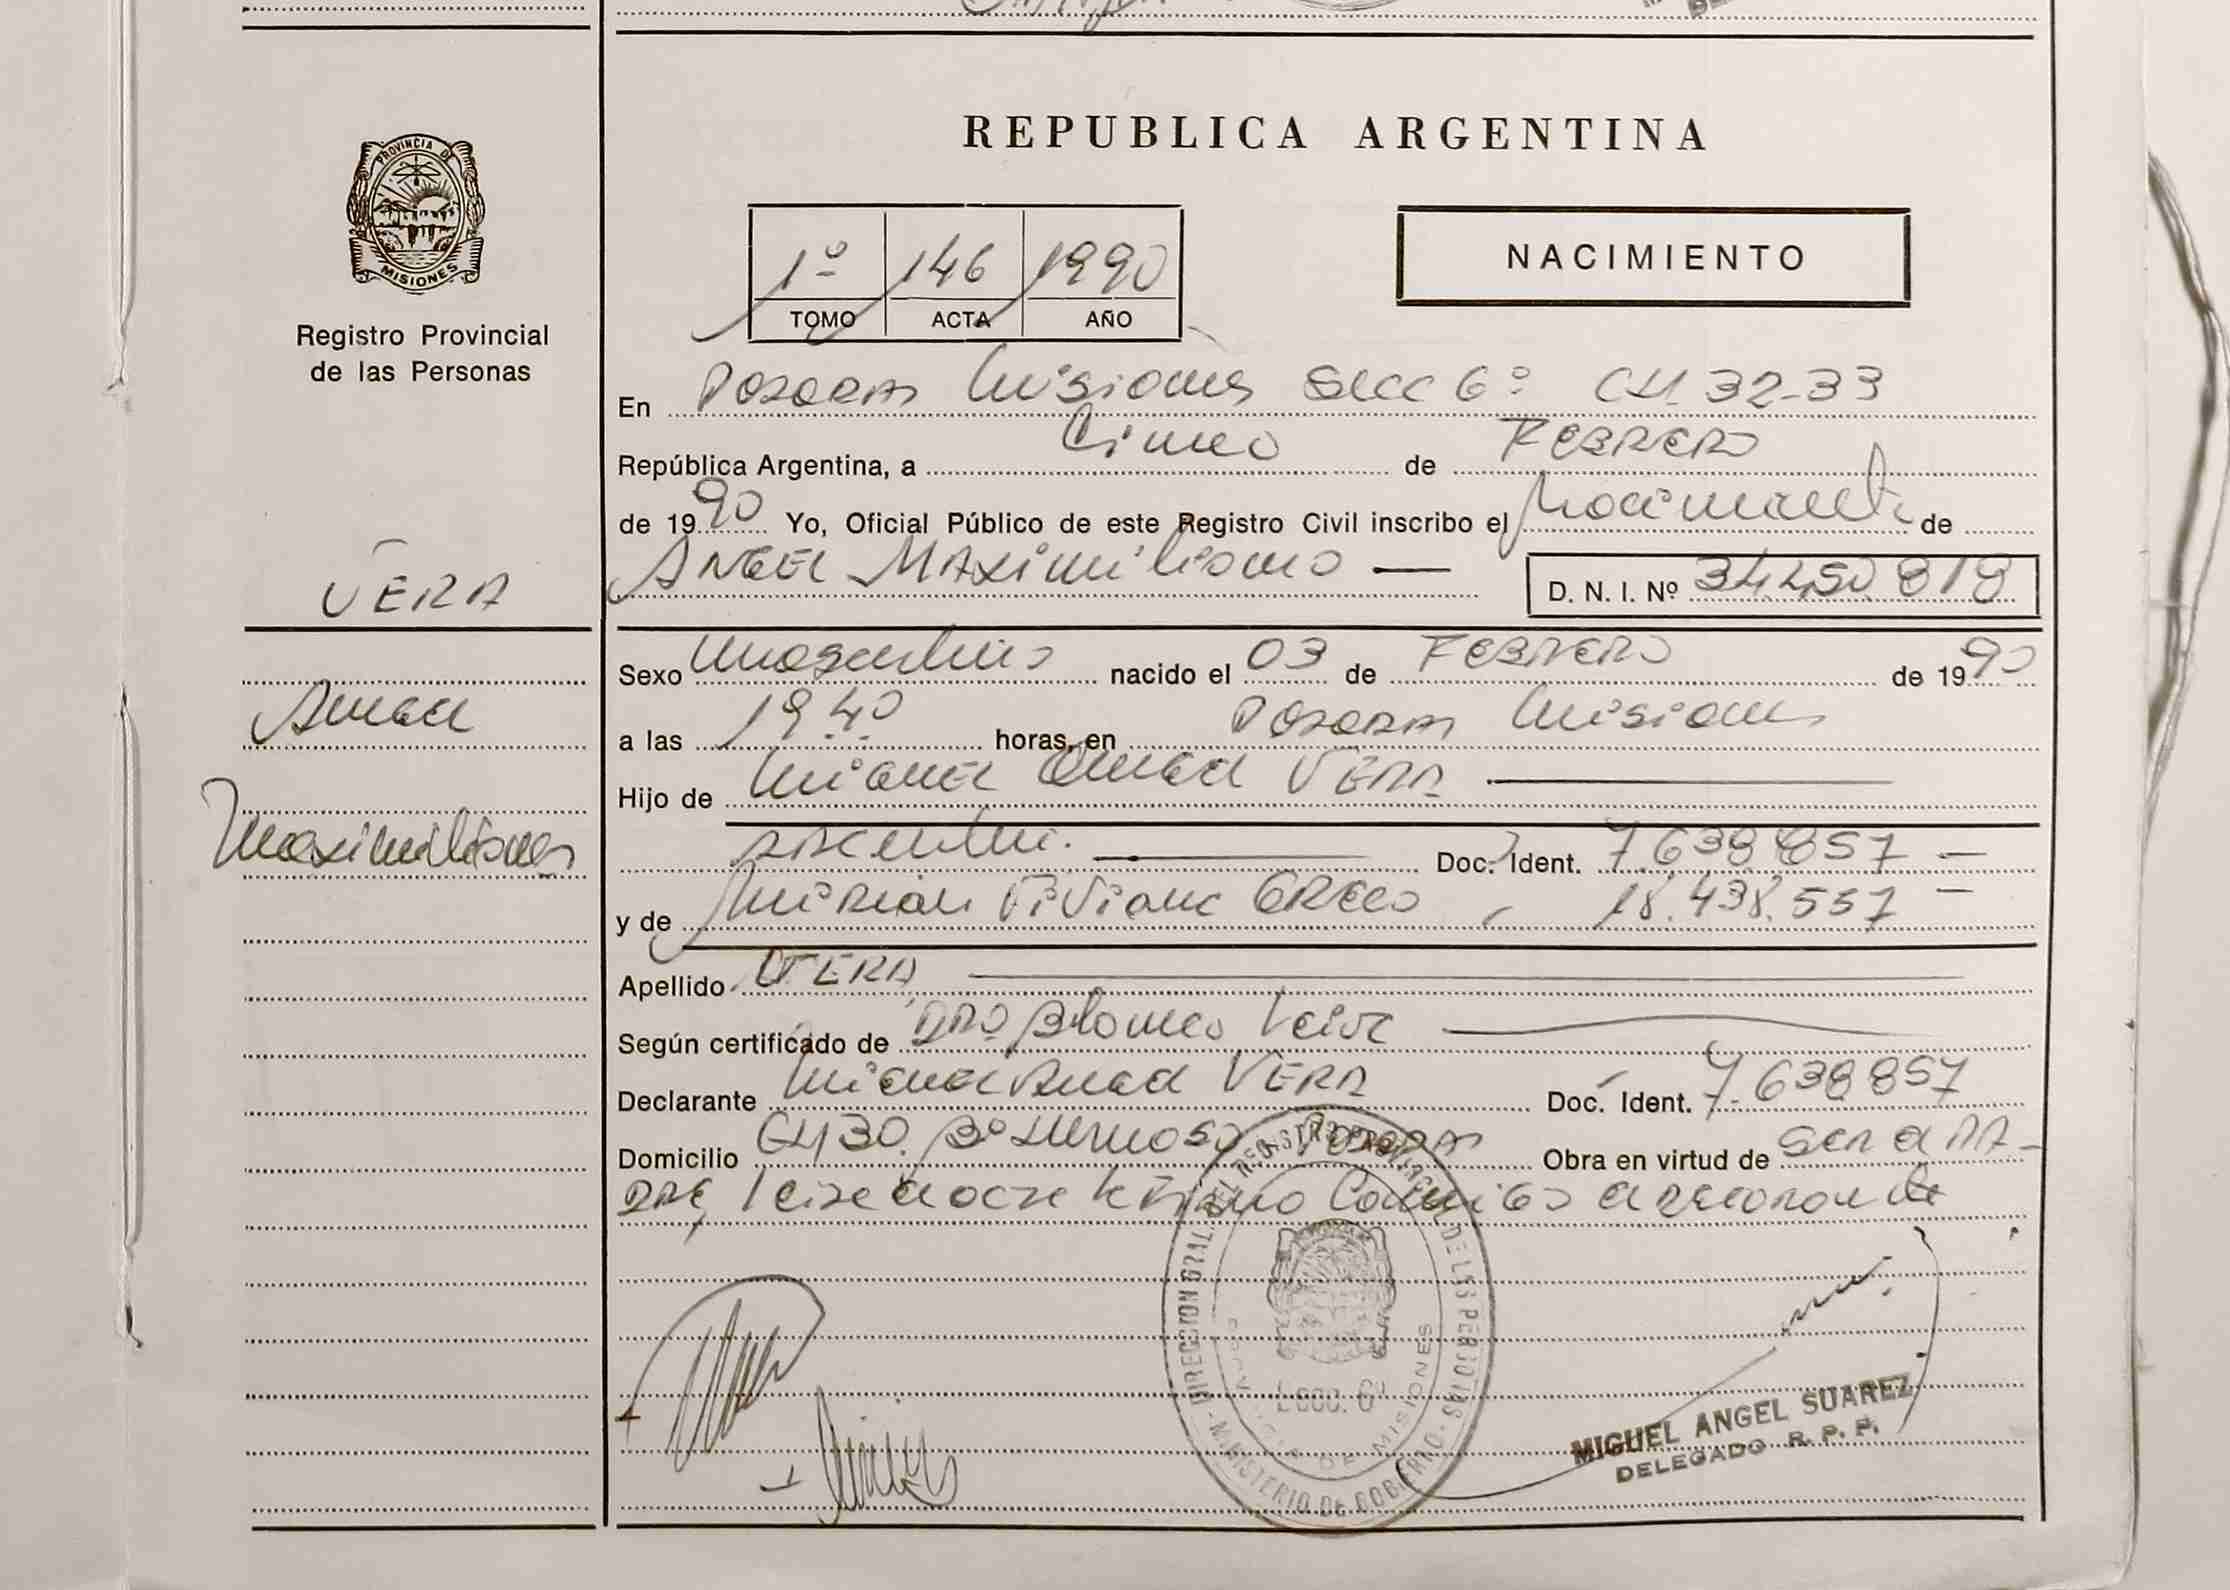 REPUBLICA ARGENTINA
PROVINCIA DE
MISIONES
Registro Provincial
de las Personas
1º 146 1990
TOMO ACTA AÑO
NACIMIENTO
En Posadas Misiones Secc 6º CH. 32-33
República Argentina, a Cinco de FEBRERO
de 1990 Yo, Oficial Público de este Registro Civil inscribo el Nacimiento de
VERA
ANGEL MAXimiliano D. N. I. Nº 34.450.818
Sexo Masculino nacido el 03 de FEBRERO de 1990
Angel
a las 19.40 horas, en Posadas Misiones
Hijo de MiGUEL Angel VERA
Maximiliano
Argentino. Doc. Ident. 7.638.857
y de MiRIAN ViViana GRECO 18.438.557
Apellido VERA
Según certificado de DRA Blanca
Declarante Miguel Angel VERA Doc. Ident. 7.638857
Domicilio CH 30. Bº Hermoso Posadas Obra en virtud de Ser el PA-
DRE
DIRECCION GRAL. DEL REGISTRO PROVINCIAL DE LAS PERSONAS
MINISTERIO DE GOBIERNO
PROVINCIA DE MISIONES
MIGUEL ANGEL SUAREZ
DELEGADO R. P. P.